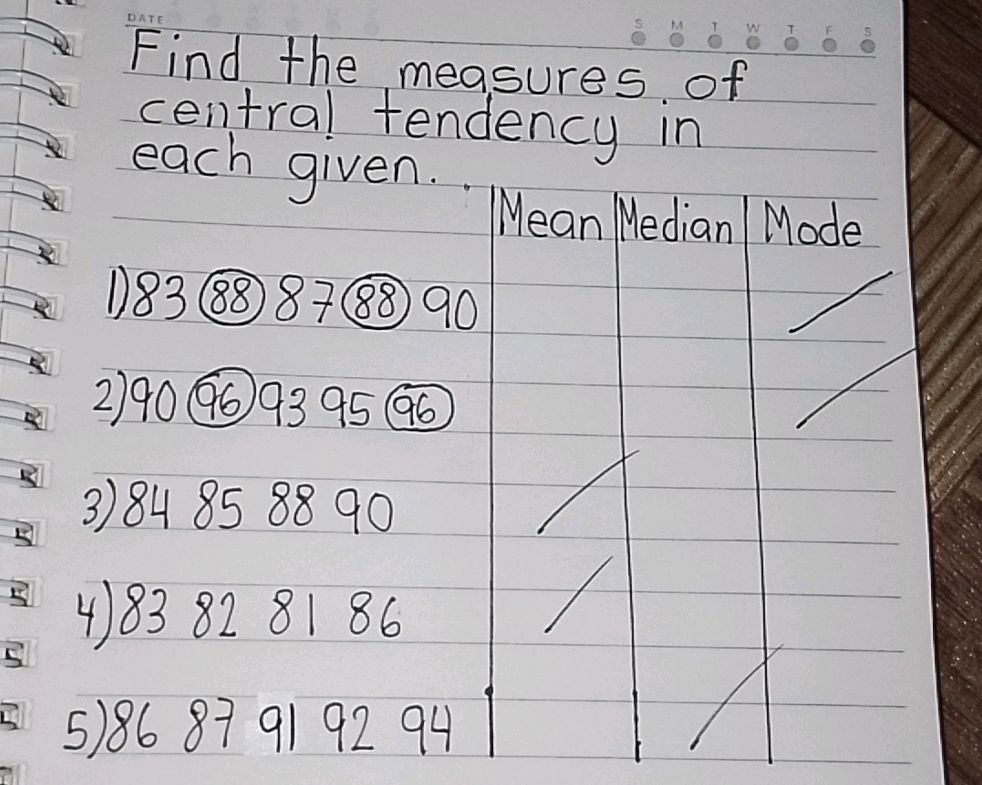 DATE S M T W T F S
Find the measures of
central tendency in
each given.
Mean Median Mode
1) 83 88 87 88 90
2) 90 96 93 95 96
3) 84 85 88 90
4) 83 82 81 86
5) 86 87 91 92 94